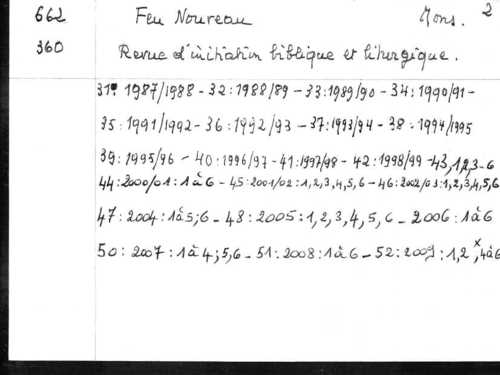 662 Feu Nouveau Mons. 2
360 Revue d'initiation biblique et liturgique.
31: 1987/1988 - 32: 1988/89 - 33: 1989/90 - 34: 1990/91 -
35: 1991/1992 - 36: 1992/93 - 37: 1993/94 - 38: 1994/1995
39: 1995/96 - 40: 1996/97 - 41: 1997/98 - 42: 1998/99 - 43,1,2,3-6
44: 2000/01: 1 à 6 - 45: 2001/02: 1,2,3,4,5,6 - 46: 2002/03: 1,2,3,4,5,6
47: 2004: 1 à 5; 6 - 48: 2005: 1, 2, 3, 4, 5, 6 - 2006: 1 à 6
50: 2007: 1 à 4; 5,6 - 51: 2008: 1 à 6 - 52: 2009: 1,2 x, 4 à 6